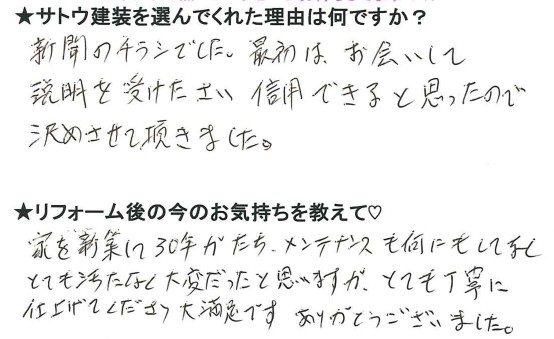 ★サトウ建装を選んでくれた理由は何ですか？
新聞のチラシでした。最初は、お会いして
説明を受けたさい 信用できると思ったので
決めさせて頂きました。
★リフォーム後の今のお気持ちを教えて♡
家を新築して30年がたち、メンテナンスも何にもしてなく
とても汚たなく大変だったと思いますが、とても丁寧に
仕上げてくださり大満足です ありがとうございました。